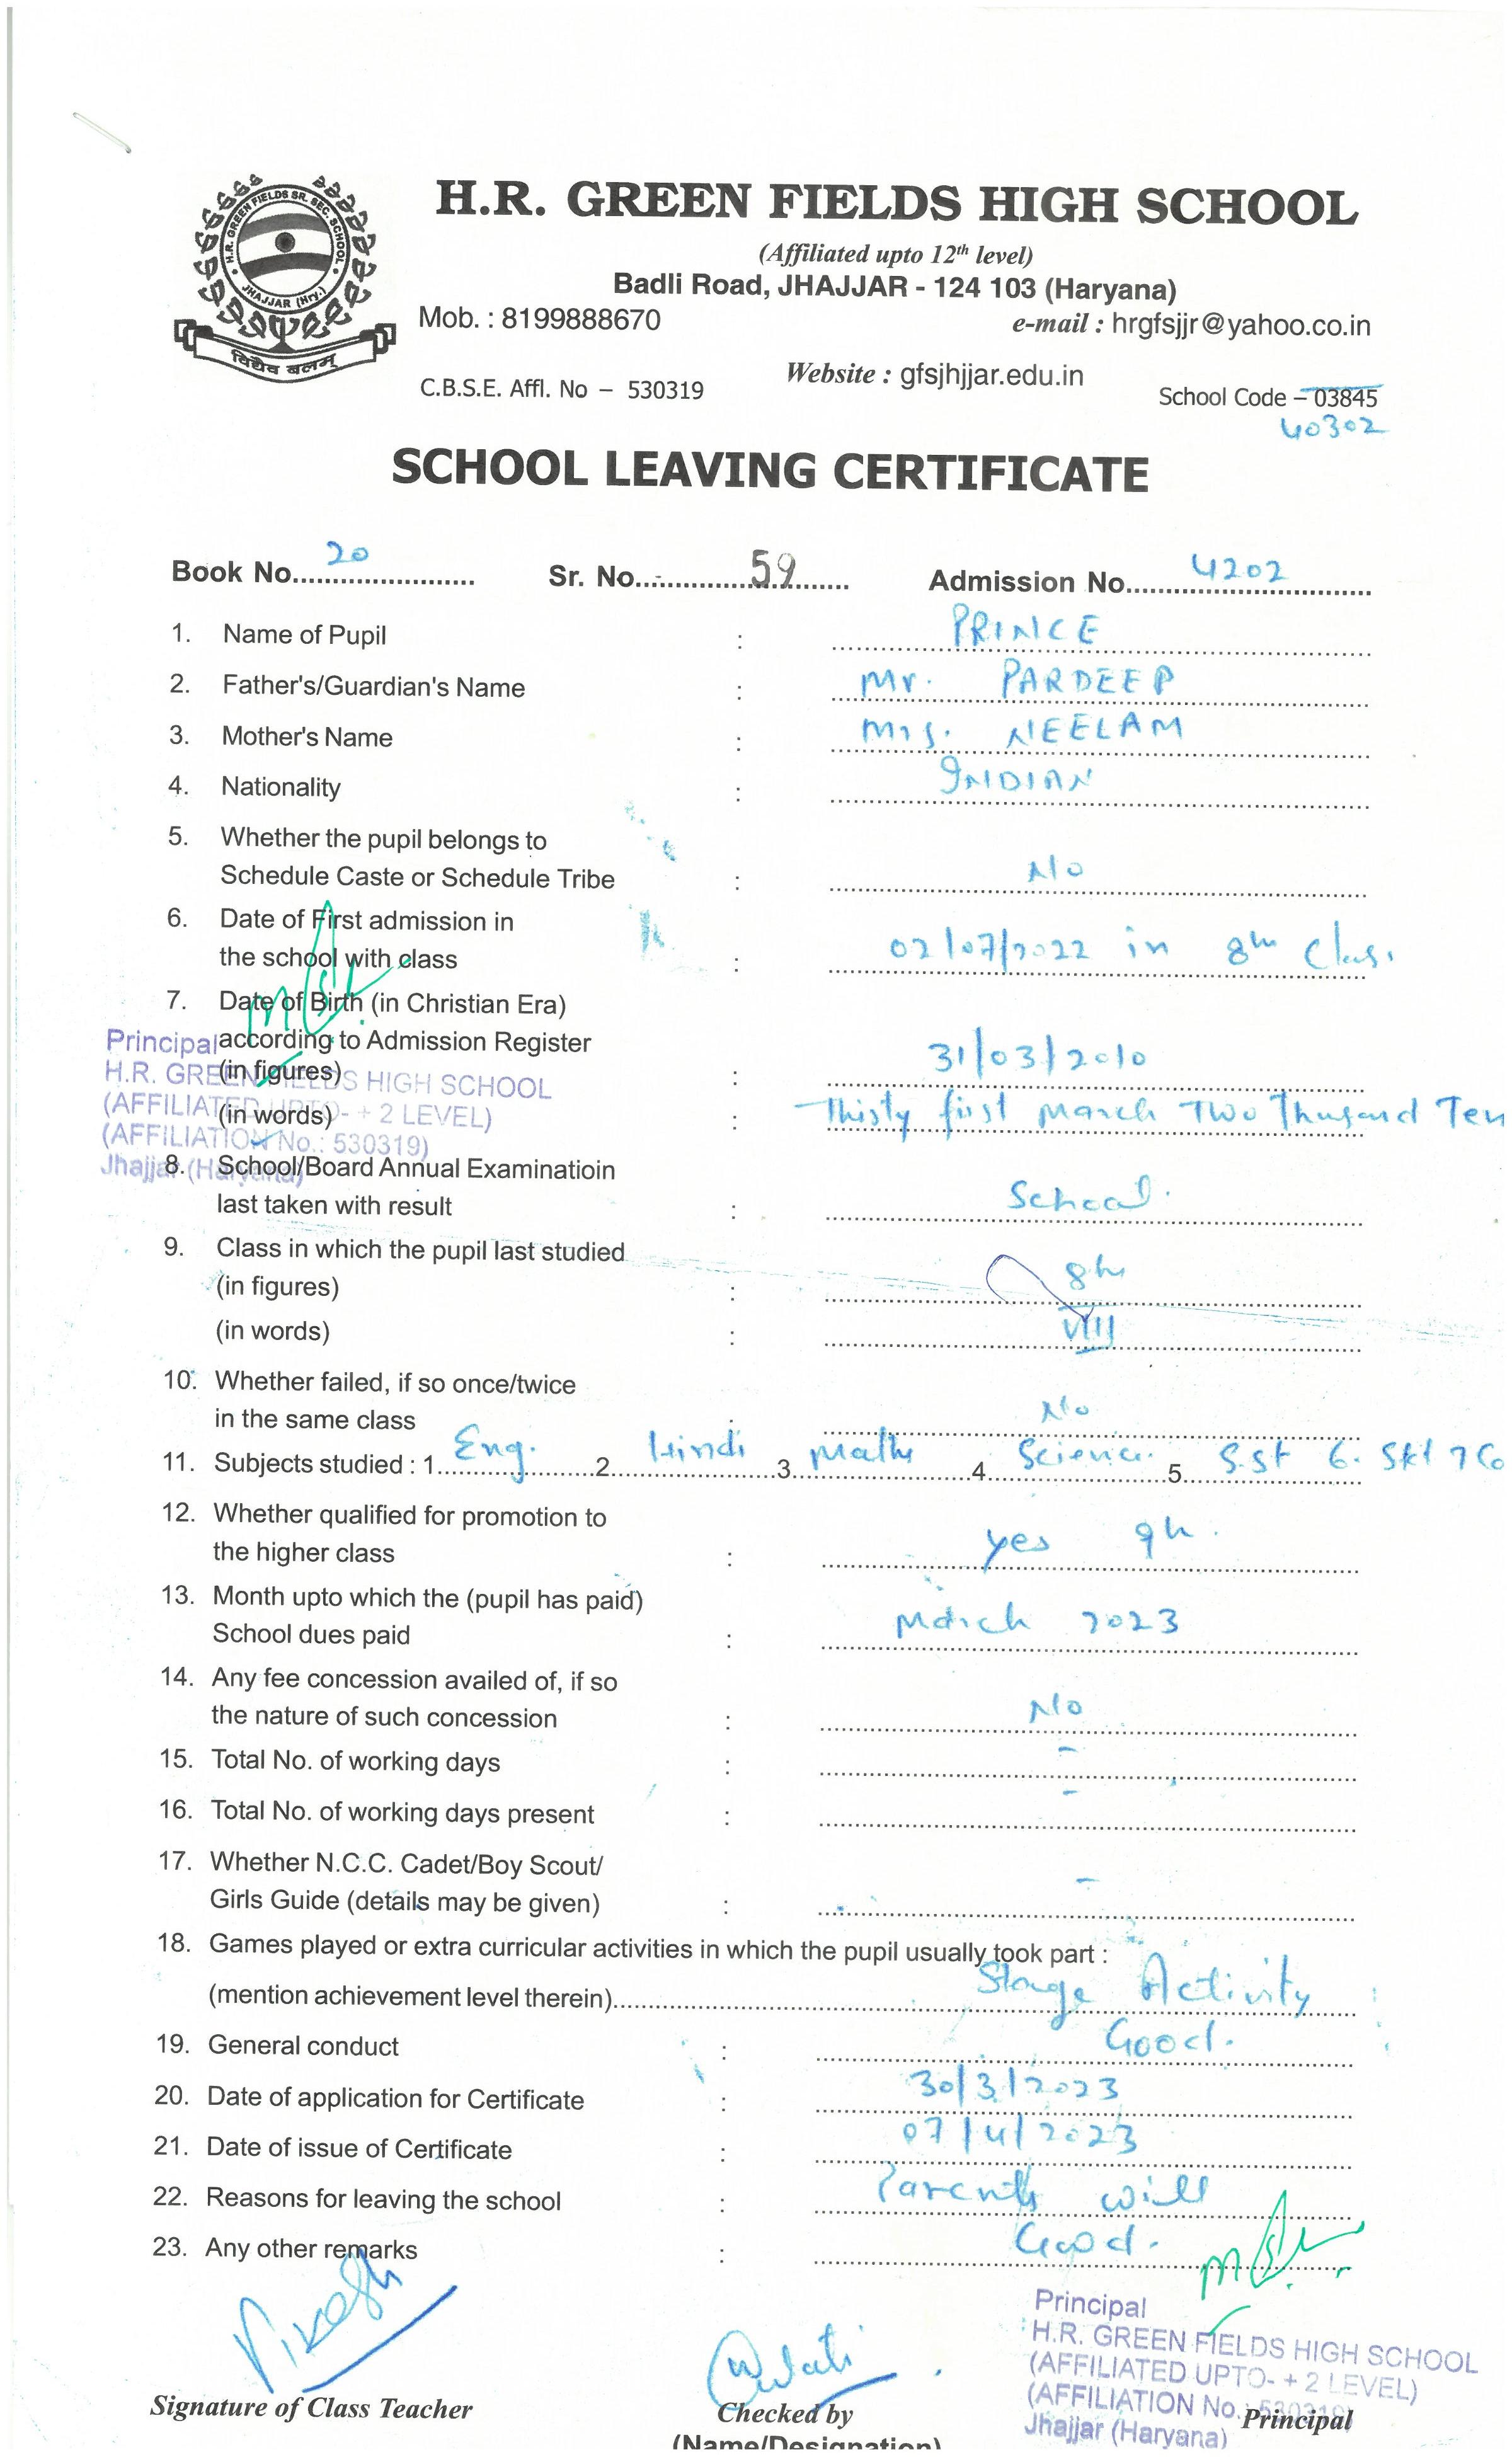 H.R. GREEN FIELDS SR. SEC. SCHOOL
JHAJJAR (Hry.)
विद्यैव बलम्
H.R. GREEN FIELDS HIGH SCHOOL
(Affiliated upto 12th level)
Badli Road, JHAJJAR - 124 103 (Haryana)
Mob. : 8199888670 e-mail : hrgfsjjr@yahoo.co.in
Website : gfsjhjjar.edu.in
C.B.S.E. Affl. No – 530319 School Code – 03845
40302
SCHOOL LEAVING CERTIFICATE
Book No. 20 Sr. No. 59 Admission No. 4202
1. Name of Pupil : PRINCE
2. Father's/Guardian's Name : Mr. PARDEEP
3. Mother's Name : Mrs. NEELAM
4. Nationality : INDIAN
5. Whether the pupil belongs to
Schedule Caste or Schedule Tribe : No
6. Date of First admission in
the school with class : 02/07/2022 in 8th Class.
7. Date of Birth (in Christian Era)
according to Admission Register
(in figures) : 31/03/2010
(in words) : Thisty first March Two Thusand Ten
Principal
H.R. GREEN FIELDS HIGH SCHOOL
(AFFILIATED UPTO- + 2 LEVEL)
(AFFILIATION No.: 530319)
Jhajjar (Haryana)
8. School/Board Annual Examinatioin
last taken with result : School.
9. Class in which the pupil last studied
(in figures) : 8th
(in words) : VIII
10. Whether failed, if so once/twice
in the same class : No
11. Subjects studied : 1 Eng. 2 Hindi 3 Maths 4 Science. 5 S.St 6. Skt 7 Co
12. Whether qualified for promotion to
the higher class : yes 9th.
13. Month upto which the (pupil has paid)
School dues paid : March 2023
14. Any fee concession availed of, if so
the nature of such concession : No
15. Total No. of working days : -
16. Total No. of working days present : -
17. Whether N.C.C. Cadet/Boy Scout/
Girls Guide (details may be given) : -
18. Games played or extra curricular activities in which the pupil usually took part :
(mention achievement level therein) Stage Activity
19. General conduct : Good.
20. Date of application for Certificate : 30/3/2023
21. Date of issue of Certificate : 07/4/2023
22. Reasons for leaving the school : Parents will
23. Any other remarks : Good.
Principal
H.R. GREEN FIELDS HIGH SCHOOL
(AFFILIATED UPTO- + 2 LEVEL)
(AFFILIATION No.: 530319)
Jhajjar (Haryana)
Signature of Class Teacher Checked by Principal
(Name/Designation)